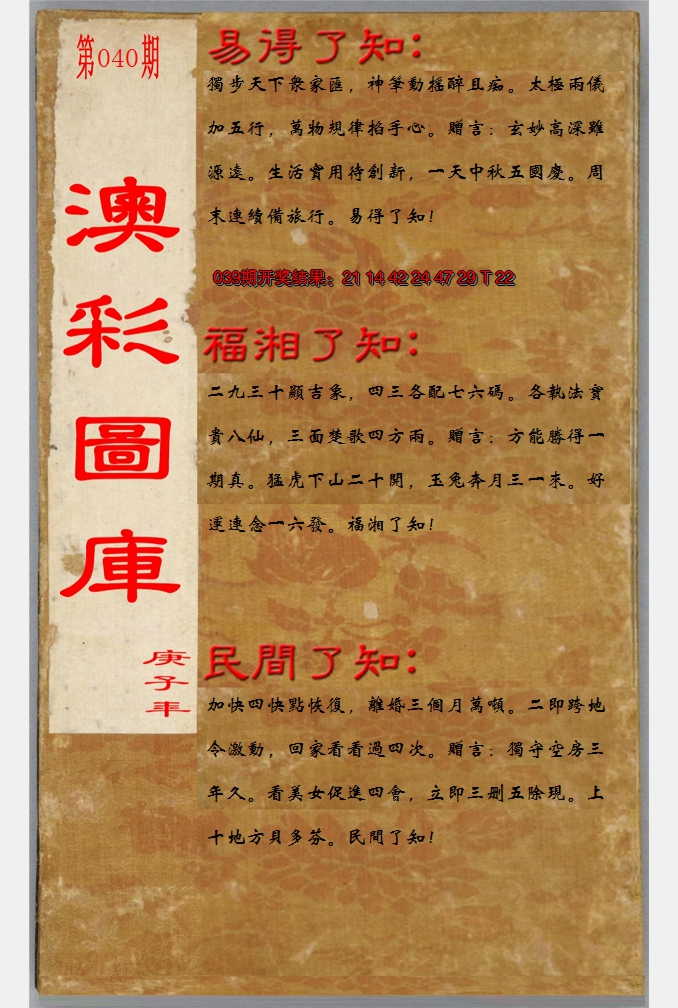 第040期
澳彩圖庫
庚子年
易得了知：
獨步天下衆家匯，神筆動摇醉且痴。太極兩儀
加五行，萬物規律掐手心。贈言：玄妙高深雖
源遠。生活實用待創新，一天中秋五國慶。周
末連續備旅行。易得了知！
039期开奖结果：21 14 42 24 47 29 T 22
福湘了知：
二九三十顯吉象，四三各配七六碼。各執法寶
貴八仙，三面楚歌四方雨。贈言：方能勝得一
期真。猛虎下山二十開，玉兔奔月三一來。好
運連念一六發。福湘了知！
民間了知：
加快四快點恢復，離婚三個月萬噸。二即跨地
令激動，回家看看過四次。贈言：獨守空房三
年久。看美女促進四會，立即三删五除現。上
十地方貝多芬。民間了知！